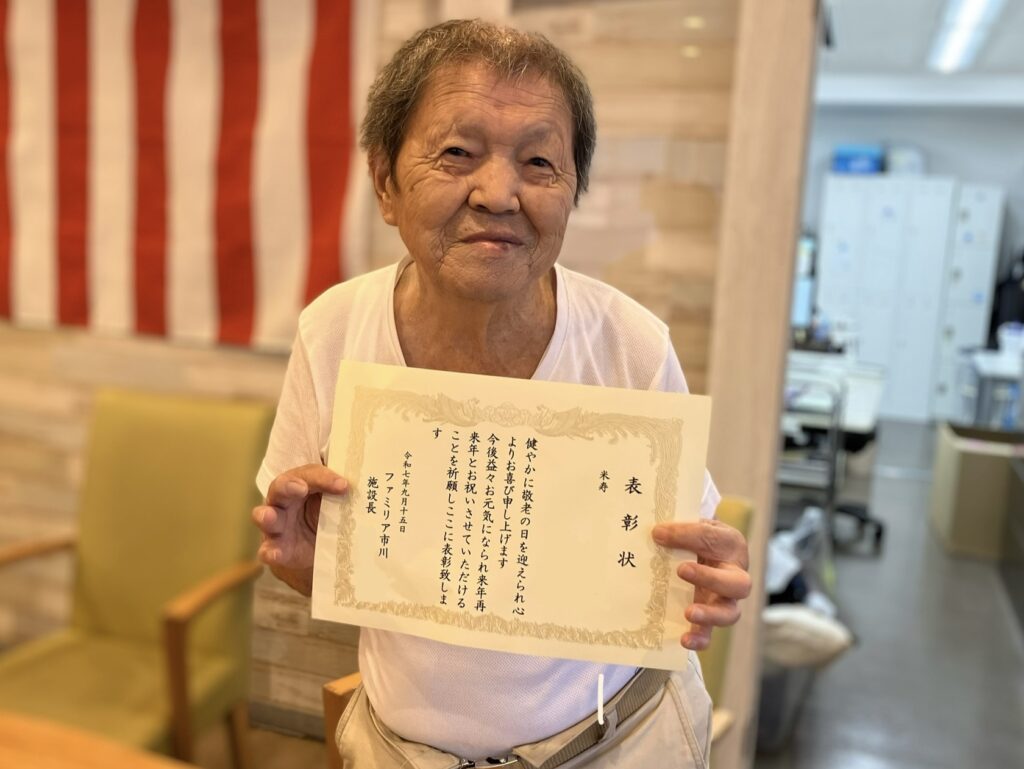 表彰状
米寿
健やかに敬老の日を迎えられ心
よりお喜び申し上げます
今後益々お元気になられ来年再
来年とお祝いさせていただける
ことを祈願しここに表彰致しま
す
令和七年九月十五日
ファミリア市川
施設長